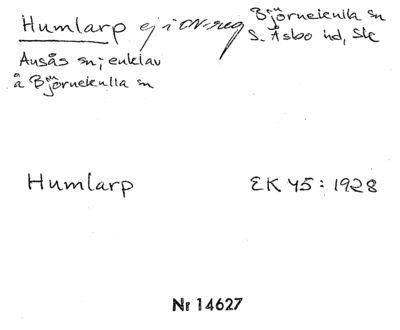 Humlarp ej i ON-reg Björnekulla sn
S. Åsbo hd, Sk
Ausås sn; enklav
å Björnekulla sn
Humlarp EK 45: 1928
Nr 14627